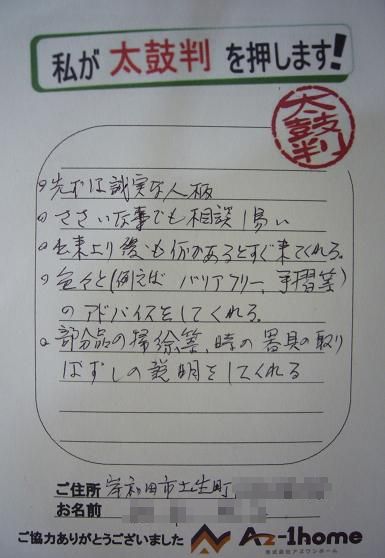 私が 太鼓判 を押します!
太鼓判
○先ずは誠実な人柄
○ささいな事でも相談し易い
○出来上り後も何かあるとすぐ来てくれる。
○色々と(例えば バリアフリー、手摺等)
のアドバイスをしてくれる。
○部分品の掃除等、時の器具の取り
はずしの説明をしてくれる
ご住所 岸和田市土生町
お名前
ご協力ありがとうございました
Az-1home
株式会社アズワンホーム